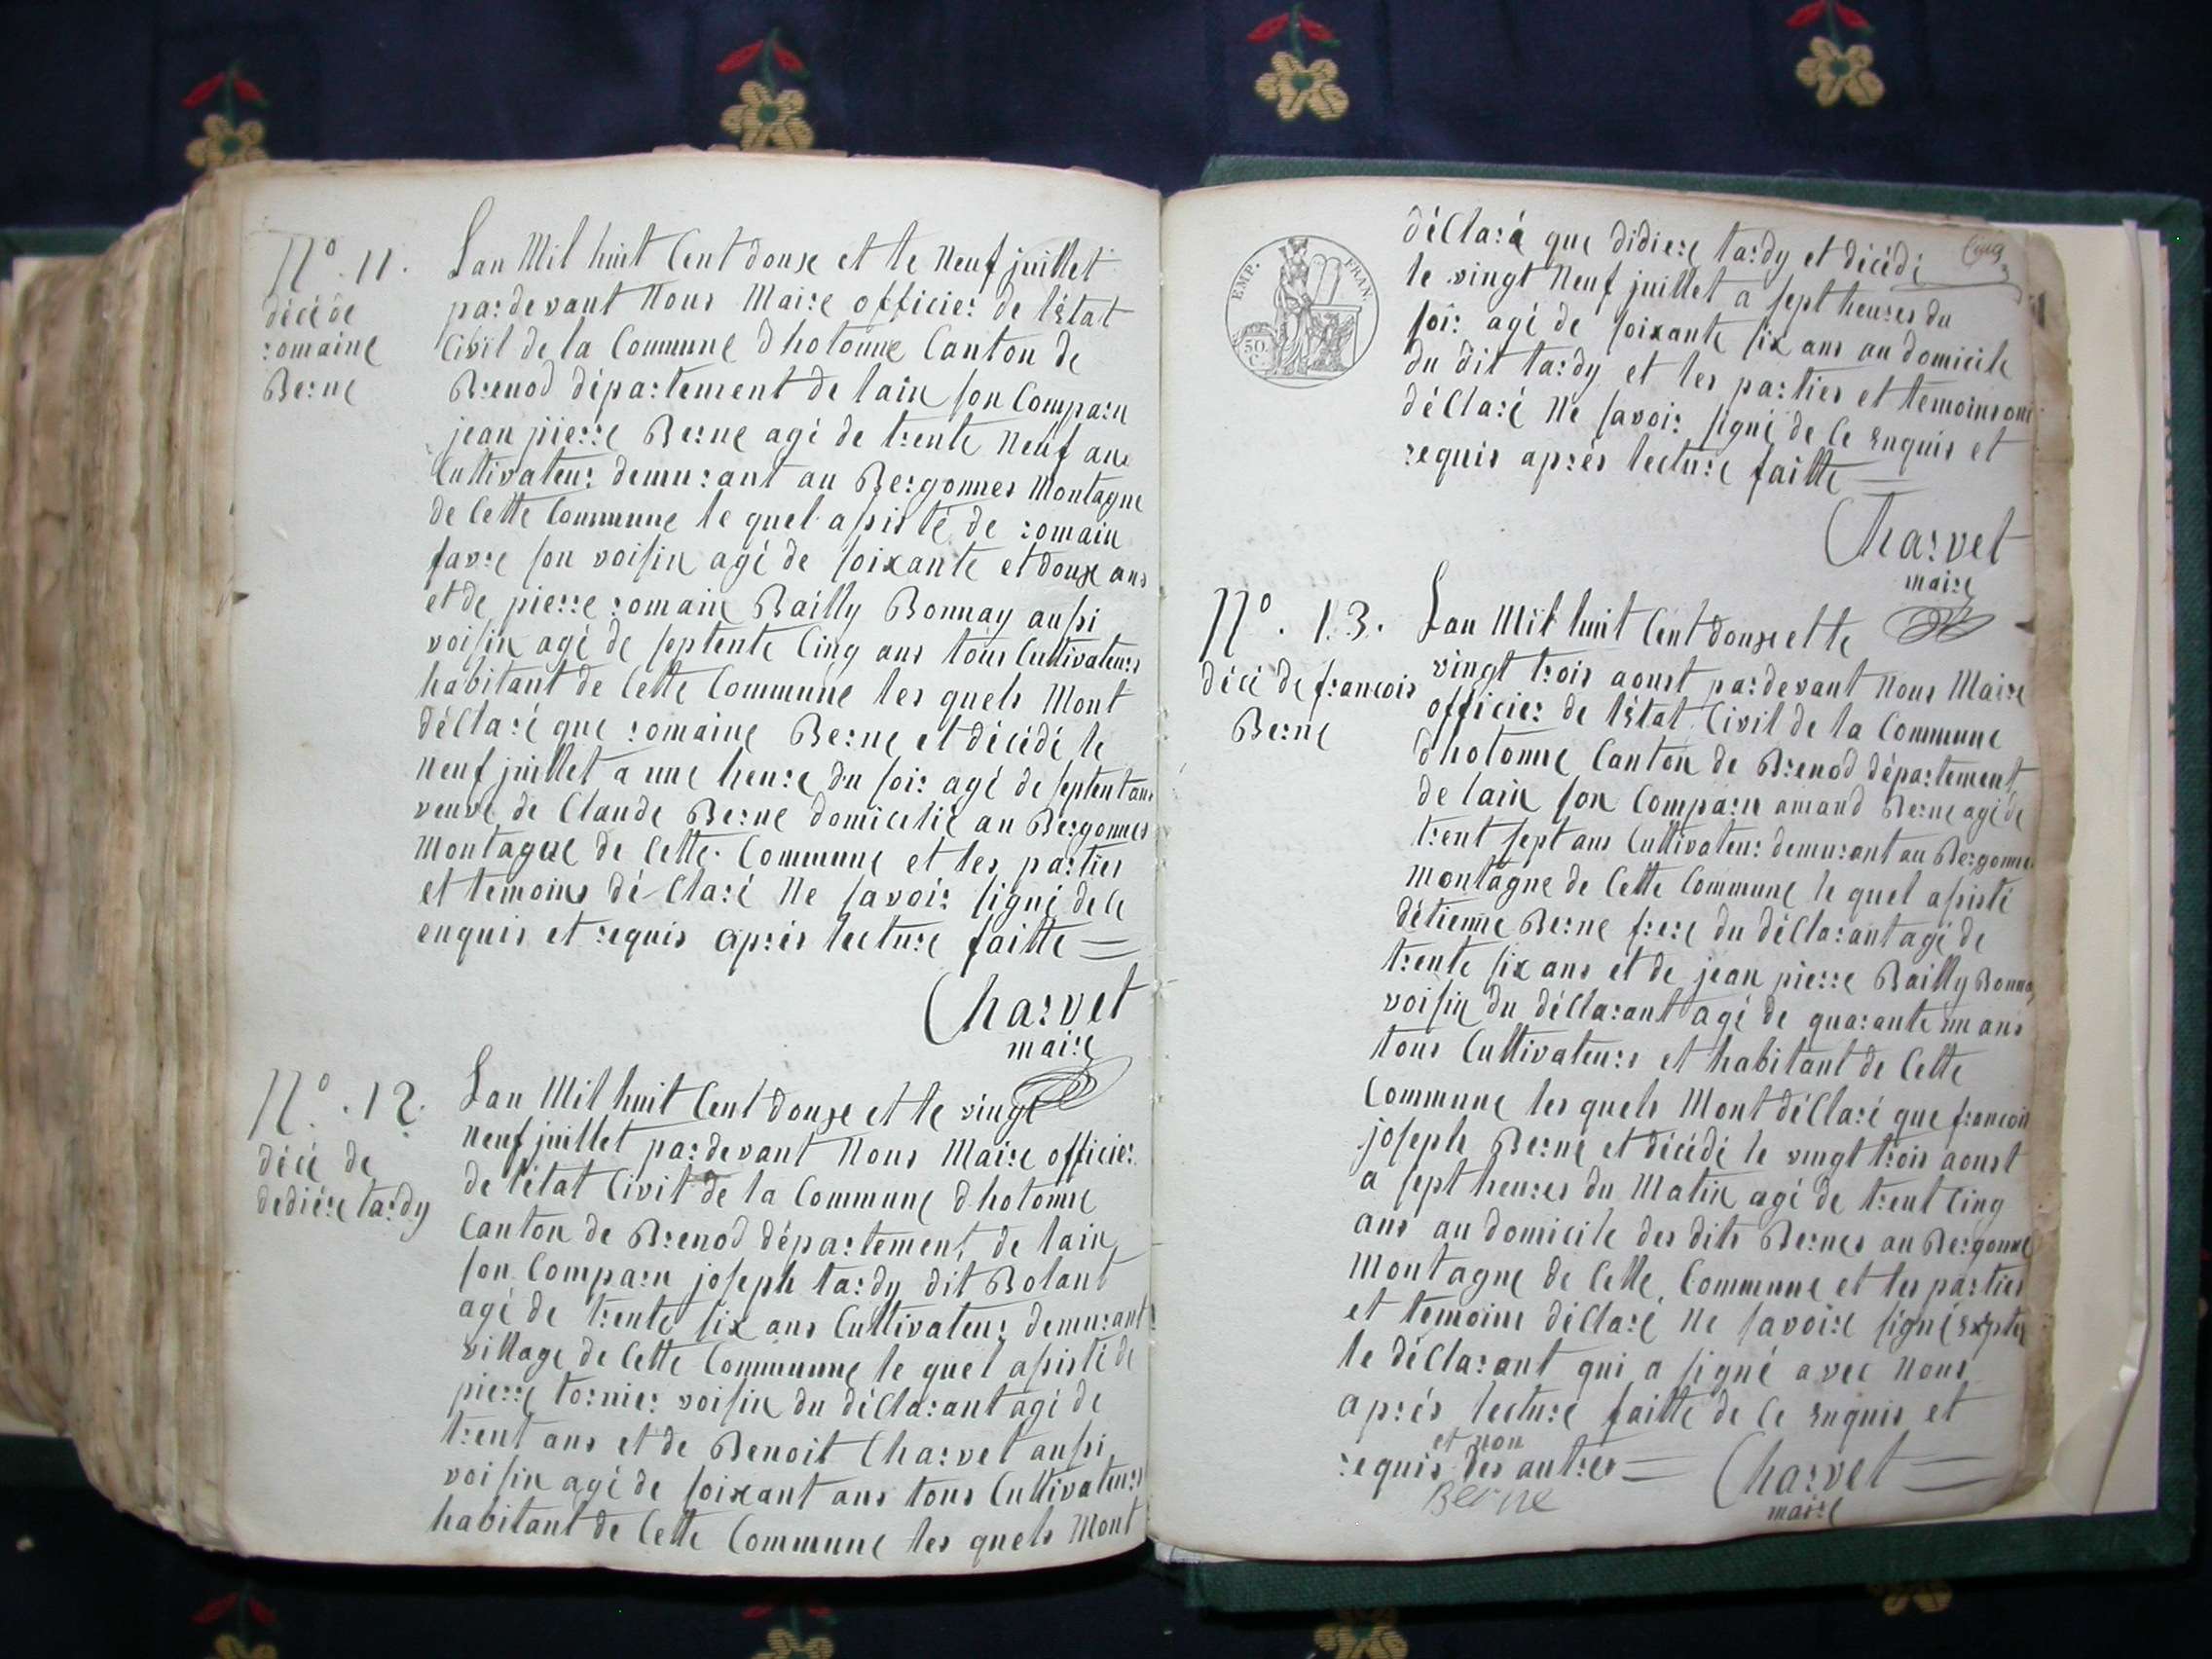 N.° 11.
décé de
romaine
Berne
Lan Mil huit Cent douse et le Neuf juillet
pardevant Nous Maire officier de létat
Civil de la Commune dhotonne Canton de
Brenod département de lain son Comparu
jean pierre Berne agé de trente Neuf ans
Cultivateur demurant au Bergonnes Montagne
de Cette Commune le quel asisté de romain
favre son voisin agé de soixante et douse ans
et de pierre romain Bailly Bonnay aussi
voisin agé de septente Cinq ans tous Cultivateurs
habitant de Cette Commune les quels Mont
déClaré que romaine Berne et décédé le
Neuf juillet a une heure du soir agé de septent ans
veuve de Claude Berne domicilié au Bergonnes
Montagne de Cette Commune et les parties
et temoins dé-Claré Ne savoir signé de Ce
enquis et requis après lecture faitte =
Charvet
maire
N.° .12.
décé de
dediére tardy
Lan Mil huit Cent douse et le vingt
Neuf juillet pardevant Nous Maire officier
de létat Civil de la Commune dhotonne
Canton de Brenod département de lain
son Comparu joseph tardy dit Bolant
agé de trente six ans Cultivateur demurant
village de Cette Commune le quel asisté de
pierre tornier voisin du déClarant agé de
trent ans et de Benoit Charvet aussi
voisin agé de soixant ans tous Cultivateurs
habitant de Cette Commune les quels Mont
Cinq
EMP. FRAN.
50
C.
déClaré que didiere tardy et décédé
le vingt Neuf juillet a sept heures du
soir agé de soixante six ans au domicile
du dit tardy et les parties et temoins ont
déClaré Ne savoir signé de Ce enquis et
requis après lecture faitte =
Charvet
maire
N.° . 13.
décé de francois
Berne
Lan Mil huit Cent douse et le
vingt trois aoust pardevant Nous Maire
officier de létat Civil de la Commune
dhotonne Canton de Brenod département
de lain son Comparu amand Berne agé de
trent sept ans Cultivateur demurant au Bergonnes
Montagne de Cette Commune le quel asisté
détienne Berne frere du déClarant agé de
trente six ans et de jean pierre Bailly Bonnay
voisin du déClarant agé de quarante un ans
tous Cultivateurs et habitant de Cette
Commune les quels Mont déClaré que francois
joseph Berne et décédé le vingt trois aoust
a sept heures du Matin agé de trent Cinq
ans au domicile des dits Bernes au Bergonnes
Montagne de Cette Commune et les parties
et temoins déClaré Ne savoire signé exptes
le déClarant qui a signé avec Nous
après lecture faitte de Ce enquis et
et non
requis des autres = Charvet =
Berne
maire